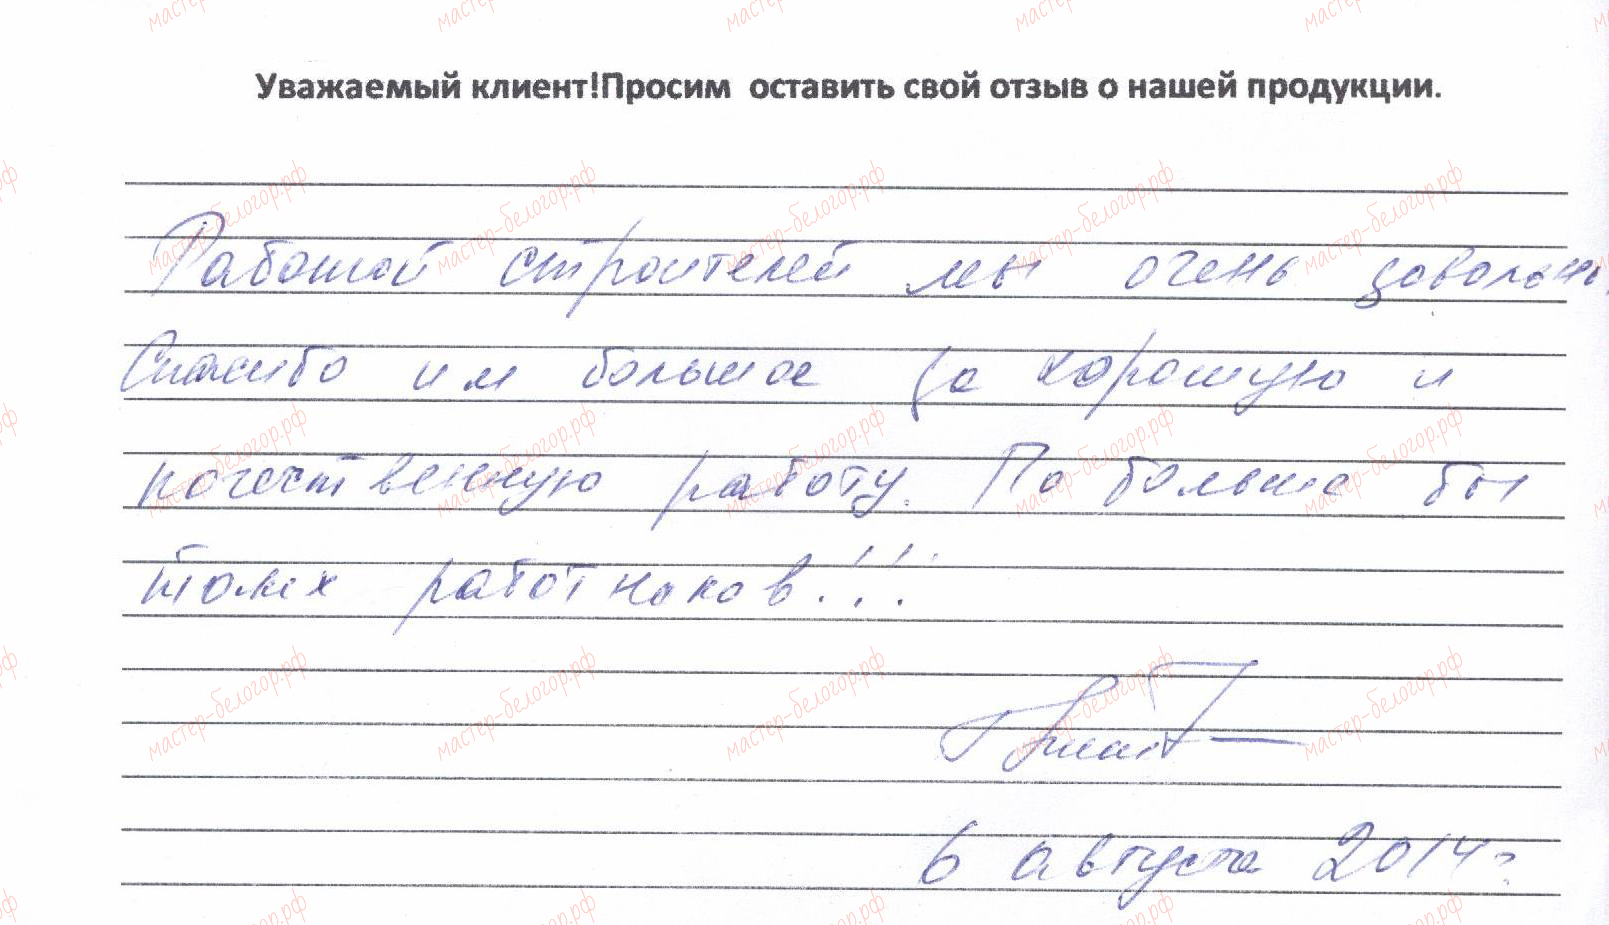 Уважаемый клиент!Просим оставить свой отзыв о нашей продукции.
Работой строителей мы очень довольны.
Спасибо им большое за хорошую и
качественную работу. По больше бы
таких работников!!!
6 августа 2014г.
мастер-белогор.рф